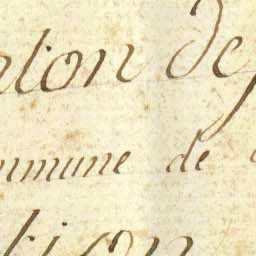 nton de
ommune de
tion